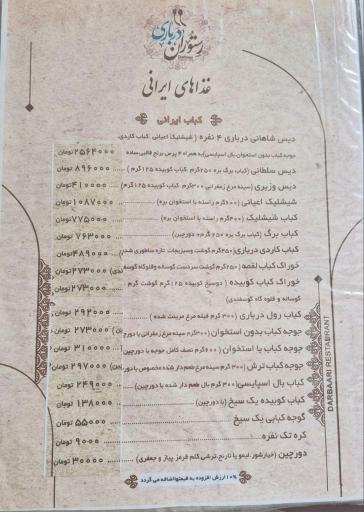 رستوران درباری
غذاهای ایرانی
کباب ایرانی
دیس شاهانی درباری ۴ نفره (شیشلیک اعیانی، کباب کاردی،
جوجه کباب بدون استخوان، بال اسپایسی) به همراه ۴ پرس برنج قالبی ساده ۲۵۶۴۰۰۰ تومان
دیس سلطانی (کباب برگ بره ۲۵۰گرم، کباب کوبیده ۱۲۵ گرم) ۸۹۶۰۰۰ تومان
دیس وزیری (سینه مرغ زعفرانی ۳۰۰گرم، کباب کوبیده ۱۲۵گرم) ۴۱۰۰۰۰ تومان
شیشلیک اعیانی (۶۰۰گرم راسته با استخوان بره) ۱۰۸۷۰۰۰ تومان
کباب شیشلیک (۴۰۰گرم راسته با استخوان بره) ۷۷۵۰۰۰ تومان
کباب برگ (کباب برگ بره ۲۵۰ گرم، دورچین) ۷۶۳۰۰۰ تومان
کباب کاردی درباری (۳۵۰گرم گوشت وسبزیجات تازه ساطوری شده) ۴۸۹۰۰۰ تومان
خوراک کباب لقمه (۲۵۰گرم گوشت سردست گوساله وقلوه گاه گوسفندی) ۲۷۳۰۰۰ تومان
خوراک کباب کوبیده (دوسیخ کوبیده ۱۲۵گرم گوشت گرم ۲۷۳۰۰۰ تومان
گوساله و قلوه گاه گوسفندی)
کباب رول درباری (۳۰۰ گرم فیله مرغ مزیت شده) ۲۹۴۰۰۰ تومان
جوجه کباب بدون استخوان (۳۰۰گرم سینه مرغ زعفرانی با دورچین) ۲۷۳۰۰۰ تومان
جوجه کباب با استخوان (۶۰۰گرم نصف کامل جوجه با دورچین) ۳۱۰۰۰۰ تومان
جوجه کباب ترش (۳۰۰گرم سینه مرغ طعم دار شده مخصوص با دورچین) ۲۹۷۰۰۰ تومان
کباب بال اسپایسی (۴۰۰گرم بال طعم دار شده با دورچین) ۲۴۹۰۰۰ تومان
کباب کوبیده یک سیخ (با دورچین) ۱۳۸۰۰۰ تومان
گوجه کبابی یک سیخ ۵۵۰۰۰ تومان
کره تک نفره ۹۰۰۰ تومان
دورچین (خیارشور، لیمو یا نارنج، ترشی کلم قرمز پیاز و جعفری) ۳۰۰۰۰ تومان
۱۰٪ ارزش افزوده به قیمتها اضافه می گردد
DARBAARI RESTAURANT